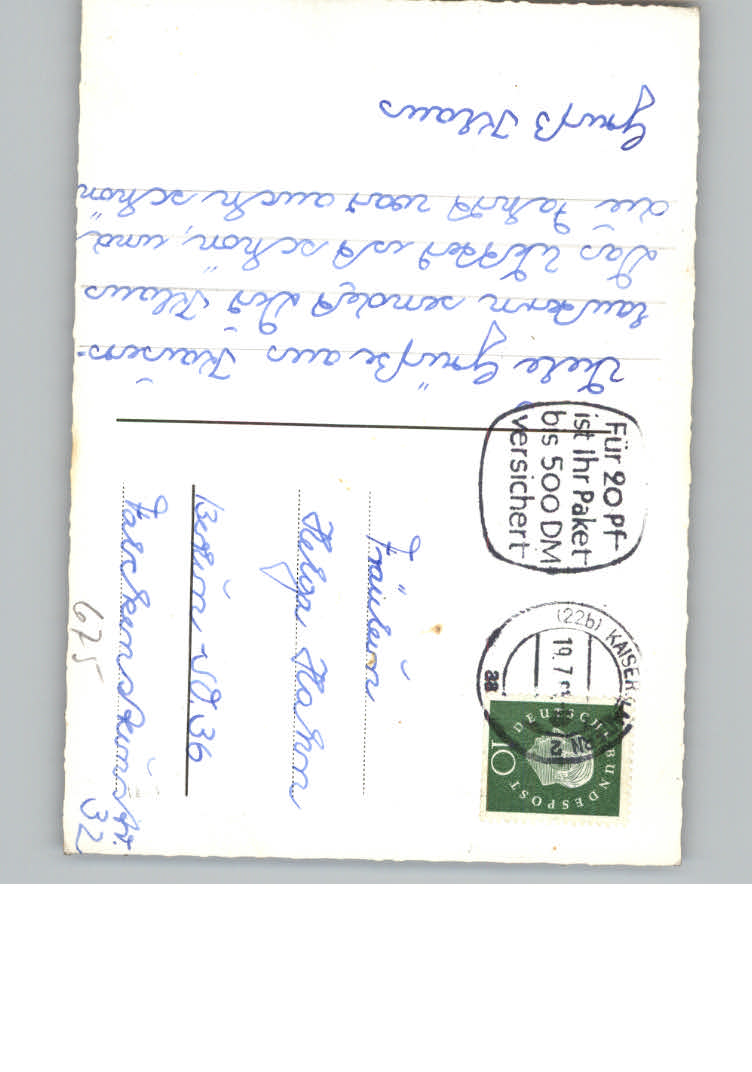 Viele Grüße aus Kaisers-
lautern sendet Dir Klaus
Das Wetter ist schön, und
die Fahrt war auch schön
Gruß Klaus
Fräulein
Helga Hahn
Berlin SO. 36
Falckensteinstr.
32
675
Für 20 Pf
ist Ihr Paket
bis 500 DM
versichert
(22b) KAISERSLAUTERN 2
19.7
aa
DEUTSCHE BUNDESPOST
10